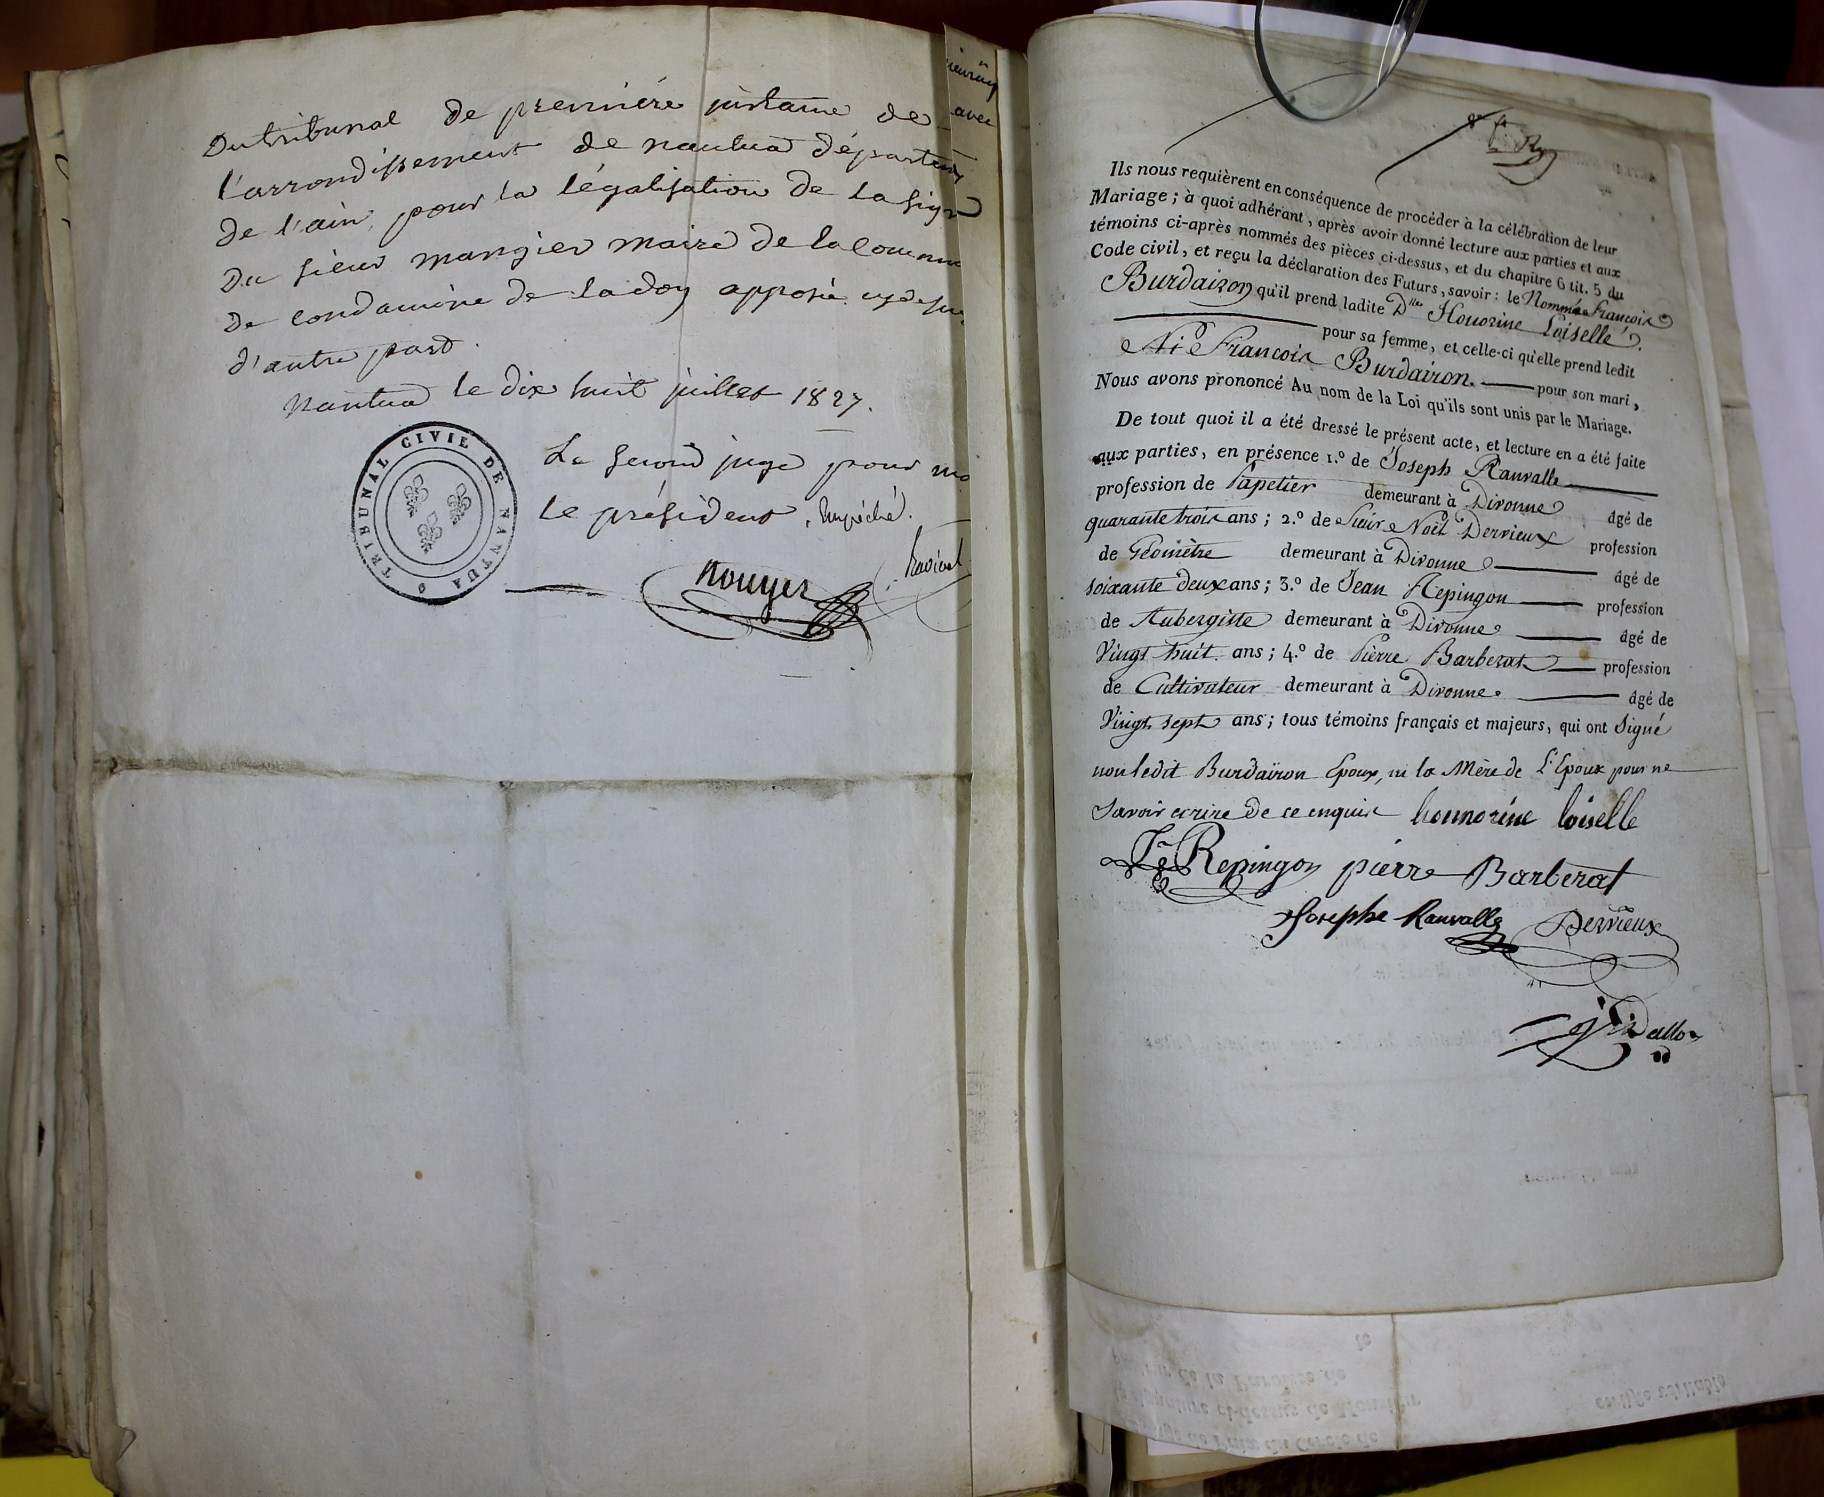 Du tribunal de premiere instance de
l'arrondissement de nantua départem
de l'ain, pour la légalisation de la sign
du sieur mangier maire de la commun
de condamine de ladoy apposée
d'autre part.
Nantua le dix huit juillet 1827.
TRIBUNAL CIVIL DE NANTUA
Le second juge pour
le président, Empéché.
Rouyer
avec
Ils nous requièrent en conséquence de procéder à la célébration de leur
Mariage ; à quoi adhérant, après avoir donné lecture aux parties et aux
témoins ci-après nommés des pièces ci-dessus, et du chapitre 6 tit. 5 du
Code civil, et reçu la déclaration des Futurs, savoir : le Nommé François
Burdairon qu'il prend ladite Dlle Honorine Loiselle
pour sa femme, et celle-ci qu'elle prend ledit
François Burdairon. pour son mari,
Nous avons prononcé Au nom de la Loi qu'ils sont unis par le Mariage.
De tout quoi il a été dressé le présent acte, et lecture en a été faite
aux parties, en présence 1.º de Joseph Ranvalle
profession de Papetier demeurant à Divonne âgé de
quarante trois ans ; 2.º de Noël Derrieux profession
de Géomètre demeurant à Divonne âgé de
soixante deux ans ; 3.º de Jean Repingon profession
de Aubergiste demeurant à Divonne âgé de
Vingt huit ans ; 4.º de Pierre Barberat profession
de Cultivateur demeurant à Divonne âgé de
Vingt sept ans ; tous témoins français et majeurs, qui ont Signé
non ledit Burdairon Epoux, ni la Mère de L'Epoux pour ne
Savoir ecrire de ce enquis honnorine loiselle
Repingon pierre Barberat
Josephe Ranvalle Derrieux